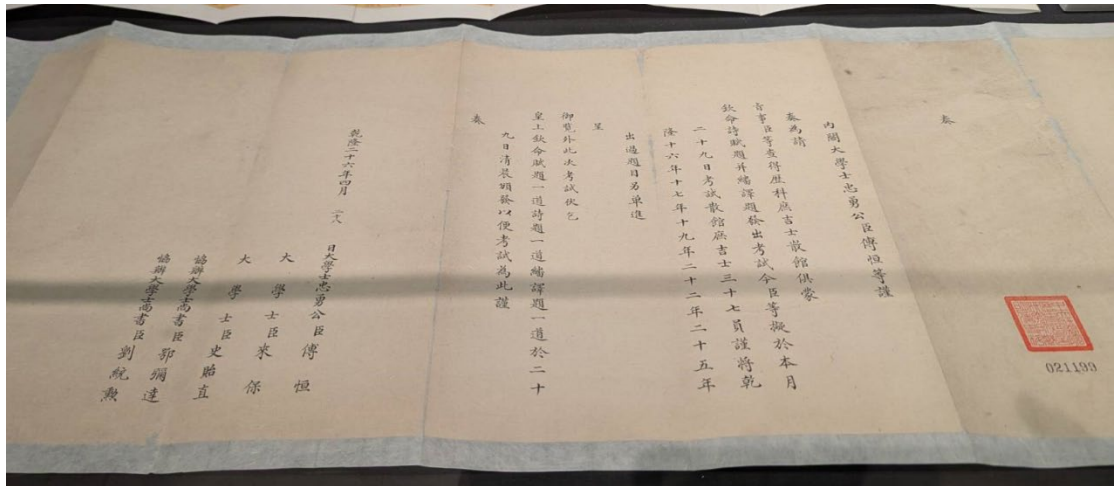 奏
內閣大學士忠勇公臣傅恒等謹
奏為請
旨事臣等查得歷科庶吉士散館俱蒙
欽命詩賦題并繙譯題發出考試今臣等擬於本月
二十九日考試散館庶吉士三十七員謹將乾
隆十六年十七年十九年二十二年二十五年
出過題目另單進
呈
御覽外此次考試伏乞
皇上欽命賦題一道詩題一道繙譯題一道於二十
九日清晨頒發以便考試為此謹
奏
乾隆二十六年四月 二十八 日大學士忠勇公臣傅恒
大學士臣來保
大學士臣史貽直
協辦大學士尚書臣鄂彌達
協辦大學士尚書臣劉統勲
021199